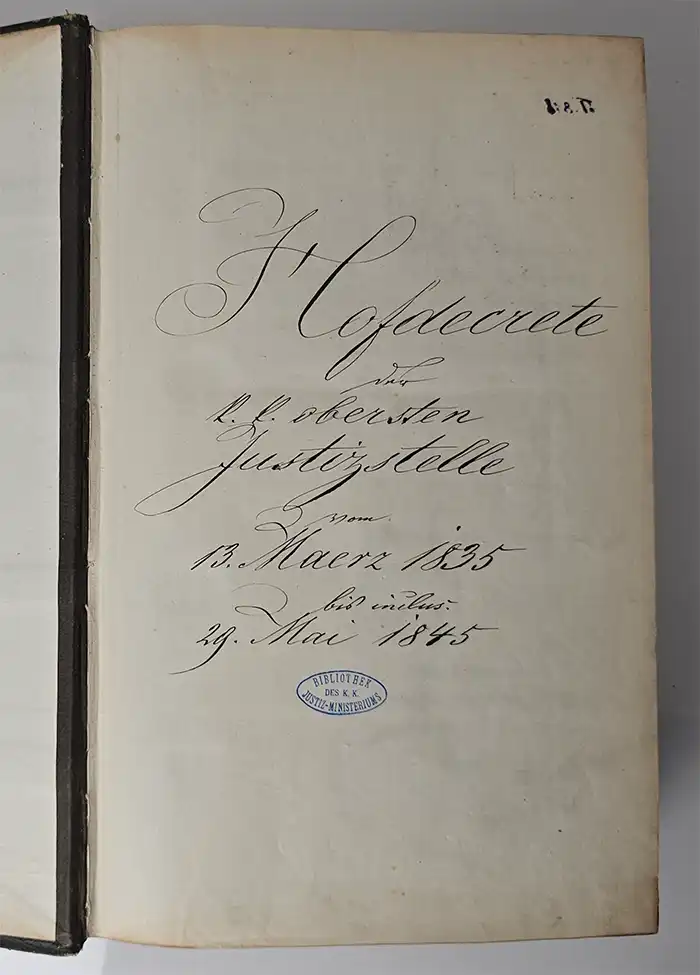 Hofdecrete
der
k. k. obersten
Justizstelle
vom
13. Maerz 1835
bis inclus.
29. Mai 1845
BIBLIOTHEK
DES K. K.
JUSTIZ-MINISTERIUMS